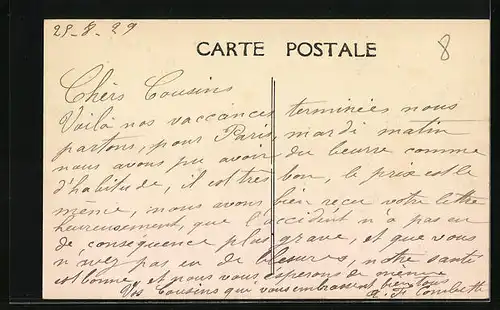 25-8-29
8
CARTE POSTALE
Chèrs Cousins
Voilà nos vaccances terminées nous
partons, pour Paris, mardi matin
nous avons pu avoir du beurre comme
d'habitude, il est très bon, le prix est le
même, nous avons bien reçu votre lettre
heureusement, que l'accident n'a pas eu
de consequence plus grave, et que vous
n'avez pas eu de blesures, notre santé
est bonne, et pour vous esperons de même
Vos Cousins qui vous embrassent bien tous